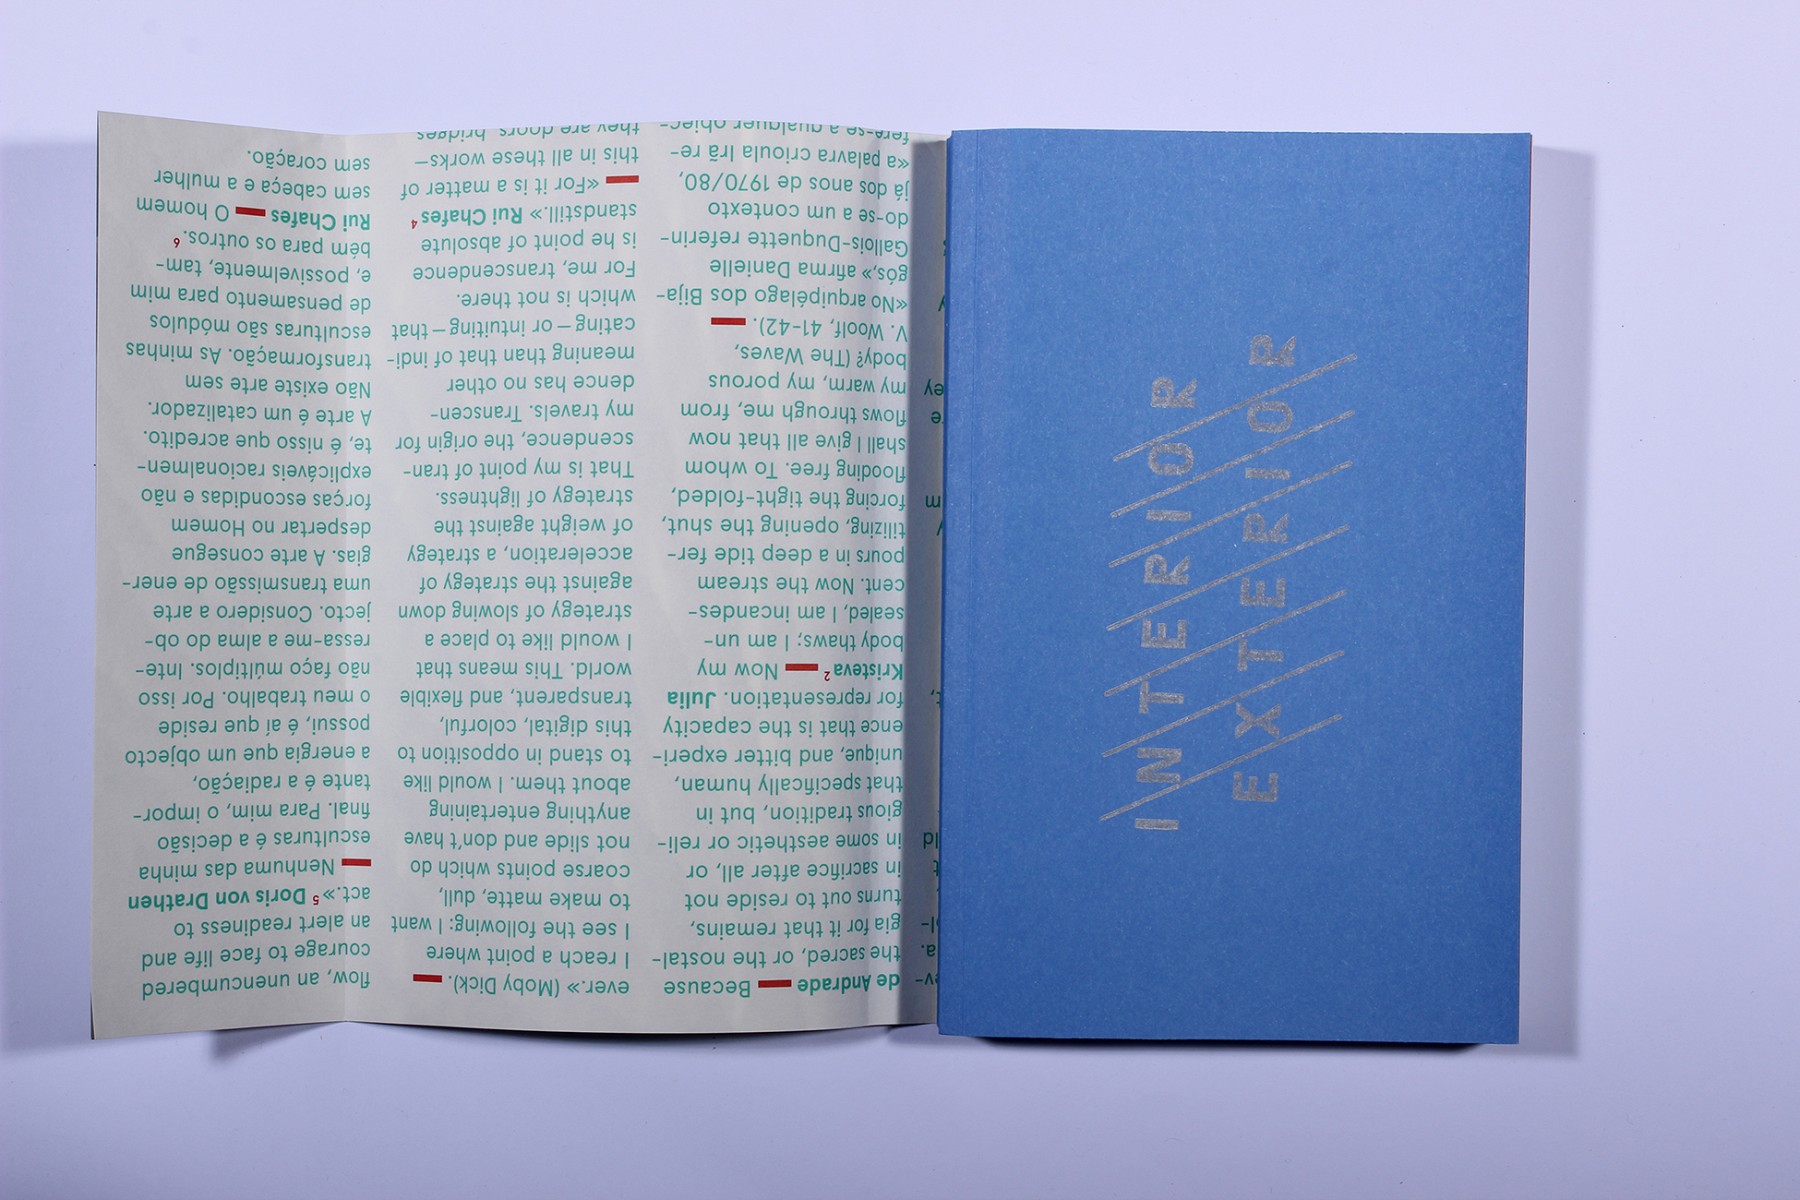 de Andrade — Because
the sacred, or the nostal-
gia for it that remains,
turns out to reside not
in sacrifice after all, or
in some aesthetic or reli-
gious tradition, but in
that specifically human,
unique, and bitter experi-
ence that is the capacity
for representation. Julia
Kristeva 2 — Now my
body thaws; I am un-
sealed, I am incandes-
cent. Now the stream
pours in a deep tide fer-
tilizing, opening the shut,
forcing the tight-folded,
flooding free. To whom
shall I give all that now
flows through me, from
my warm, my porous
body? (The Waves,
V. Woolf, 41-42). —
«No arquipélago dos Bija-
gós,» afirma Danielle
Gallois-Duquette referin-
do-se a um contexto
já dos anos de 1970/80,
«a palavra crioula Irã re-
fere-se a qualquer objec-
ever.» (Moby Dick). —
I reach a point where
I see the following: I want
to make matte, dull,
coarse points which do
not slide and don't have
anything entertaining
about them. I would like
to stand in opposition to
this digital, colorful,
transparent, and flexible
world. This means that
I would like to place a
strategy of slowing down
against the strategy of
acceleration, a strategy
of weight against the
strategy of lightness.
That is my point of tran-
scendence, the origin for
my travels. Transcen-
dence has no other
meaning than that of indi-
cating – or intuiting – that
which is not there.
For me, transcendence
is he point of absolute
standstill.» Rui Chafes 4
— «For it is a matter of
this in all these works–
they are doors, bridges
flow, an unencumbered
courage to face life and
an alert readiness to
act.» 5 Doris von Drathen
— Nenhuma das minha
esculturas é a decisão
final. Para mim, o impor-
tante é a radiação,
a energia que um objecto
possui, é aí que reside
o meu trabalho. Por isso
não faço múltiplos. Inte-
ressa-me a alma do ob-
jecto. Considero a arte
uma transmissão de ener-
gias. A arte consegue
despertar no Homem
forças escondidas e não
explicáveis racionalmen-
te, é nisso que acredito.
A arte é um catalizador.
Não existe arte sem
transformação. As minhas
esculturas são módulos
de pensamento para mim
e, possivelmente, tam-
bém para os outros. 6
Rui Chafes — O homem
sem cabeça e a mulher
sem coração.
INTERIOR
EXTERIOR